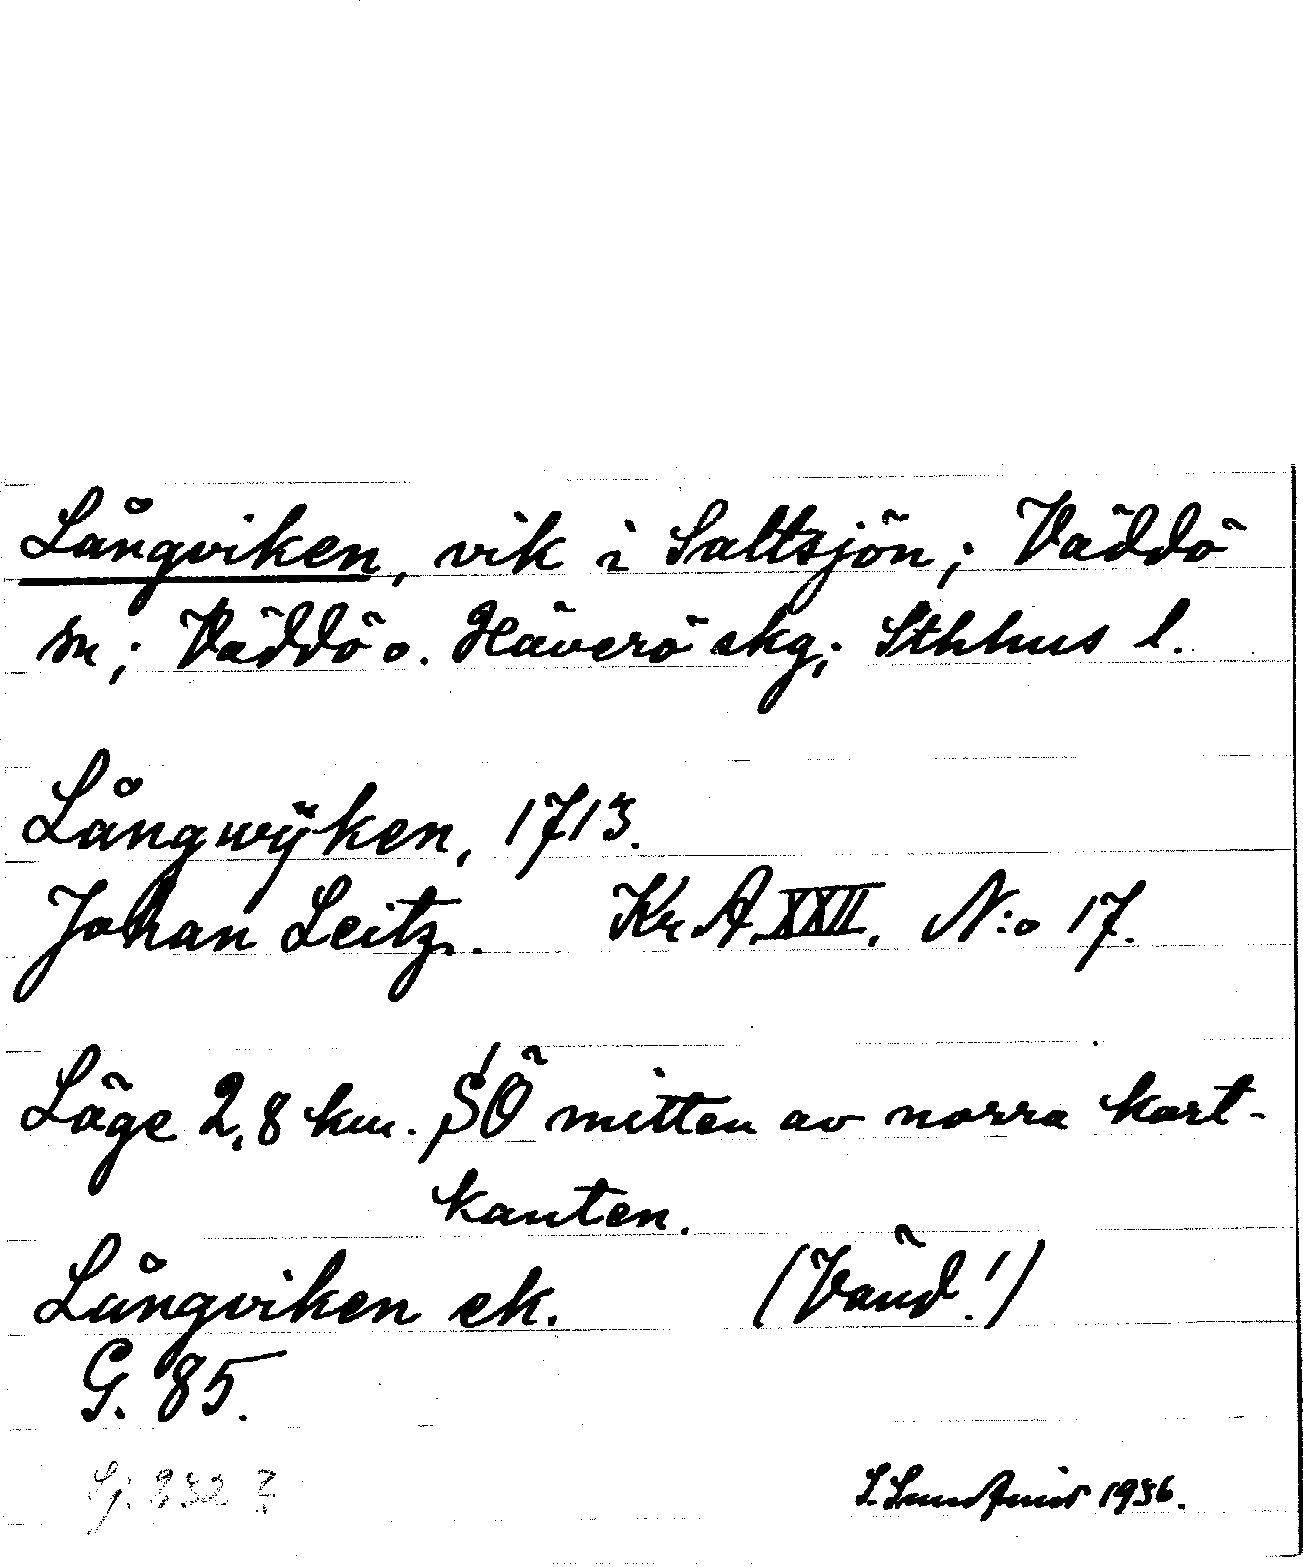 Långviken, vik i Saltsjön; Väddö
sn; Väddö o. Häverö skg; Sthlms l.
Långwÿken, 1713.
Johan Leitz. Kr. A. XXII. N:o 17.
Läge 2,8 km. SÖ mitten av norra kart-
kanten.
Långviken ek. (Vänd!)
G. 85.
Gj. 832
1936.